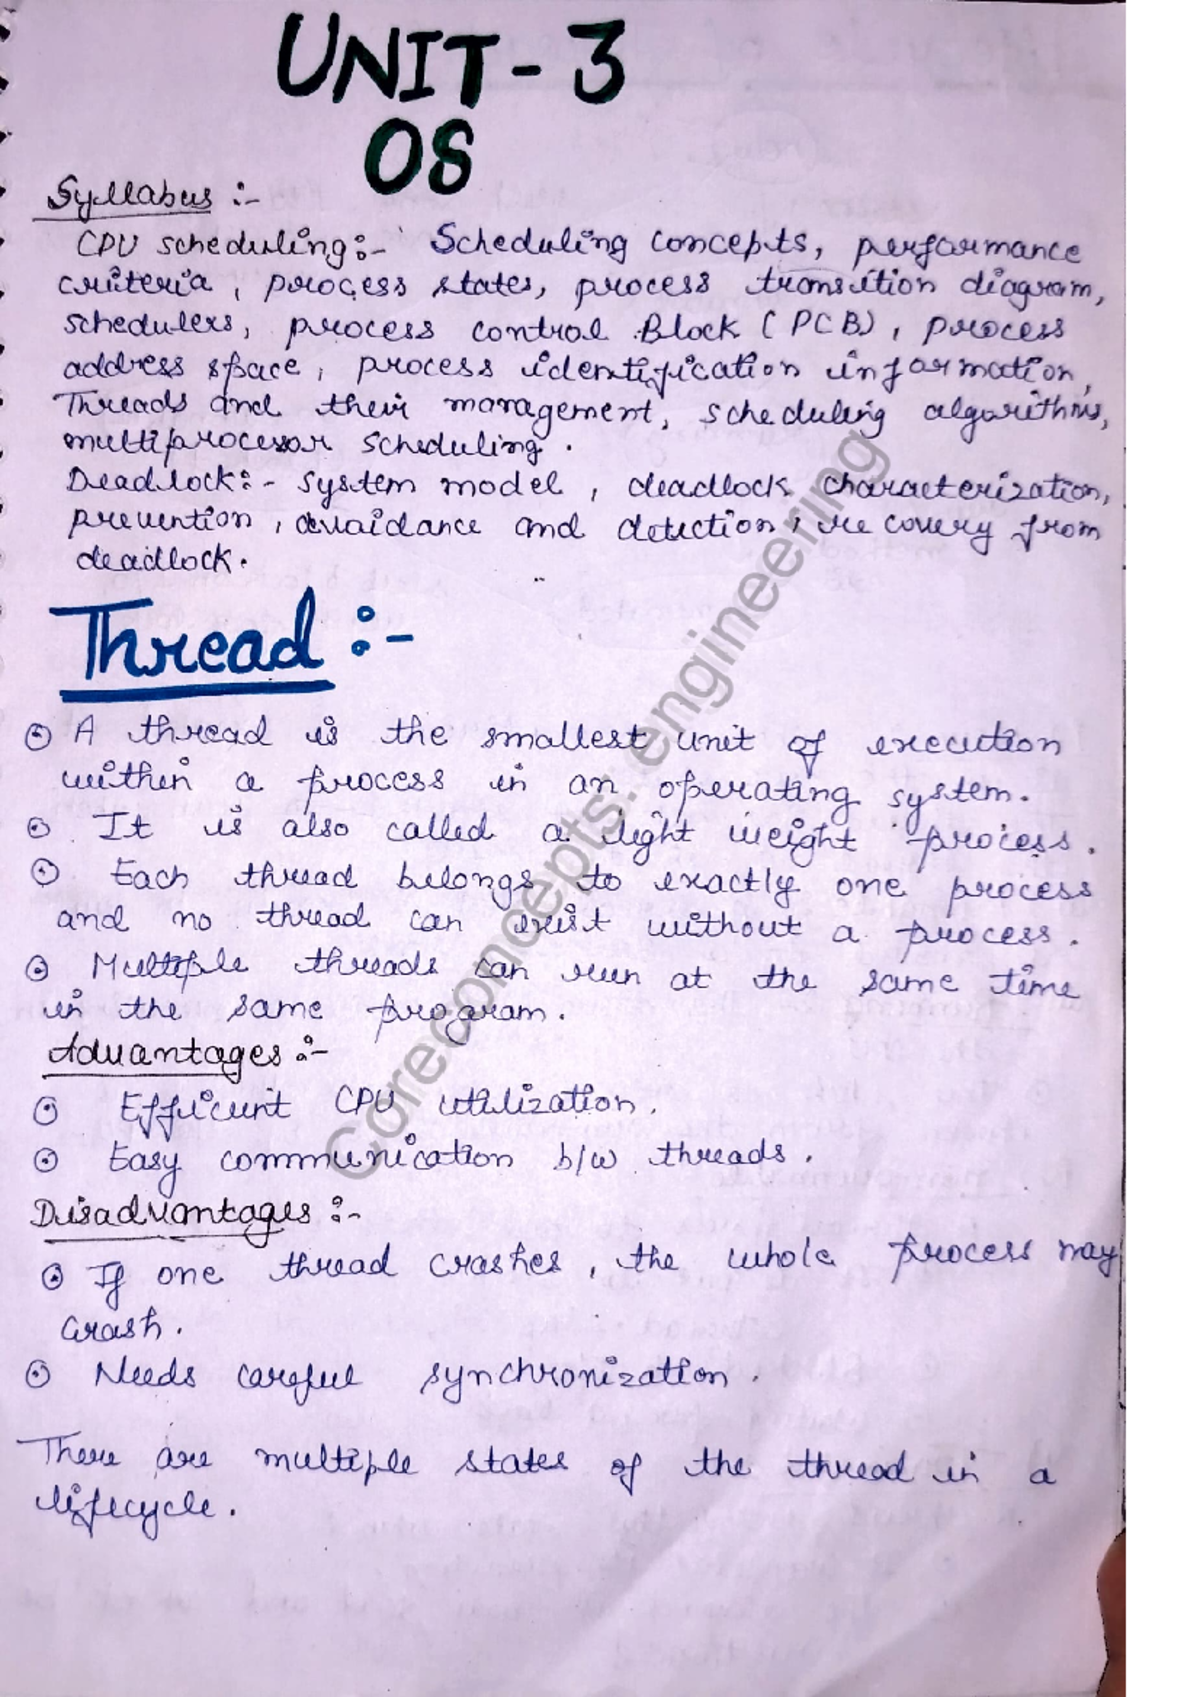 UNIT-3
OS
Syllabus :-
CPU scheduling:- Scheduling concepts, performance
criteria, process states, process transition diagram,
schedulers, process control Block (PCB), process
address space, process identification information,
Threads and their management, scheduling algorithms,
multiprocessor scheduling.
Deadlock:- System model, deadlock characterization,
prevention, avoidance and detection, recovery from
deadlock.
Thread :-
⊙ A thread is the smallest unit of execution
within a process in an operating system.
⊙ It is also called a light weight process.
⊙ Each thread belongs to exactly one process
and no thread can exist without a process.
⊙ Multiple threads can run at the same time
in the same program.
Advantages :-
⊙ Efficient CPU utilization.
⊙ Easy communication b/w threads.
Disadvantages :-
⊙ If one thread crashes, the whole process may
crash.
⊙ Needs careful synchronization.
There are multiple states of the thread in a
lifecycle.
Coreconcepts.engineering